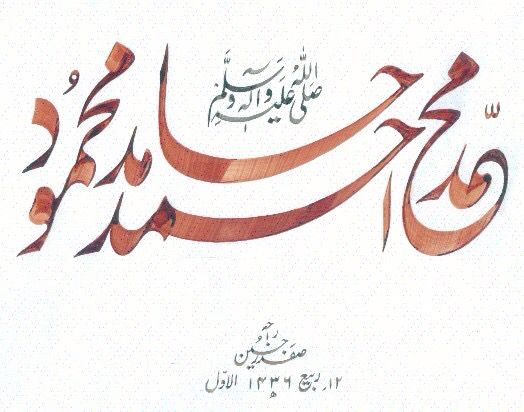 محمّد احمد حامد محمود
صلی اللہ علیہ وآلہ وسلم
صفدر حسین
۱۲ ربیع الاوّل ۱۴۳۶ھ